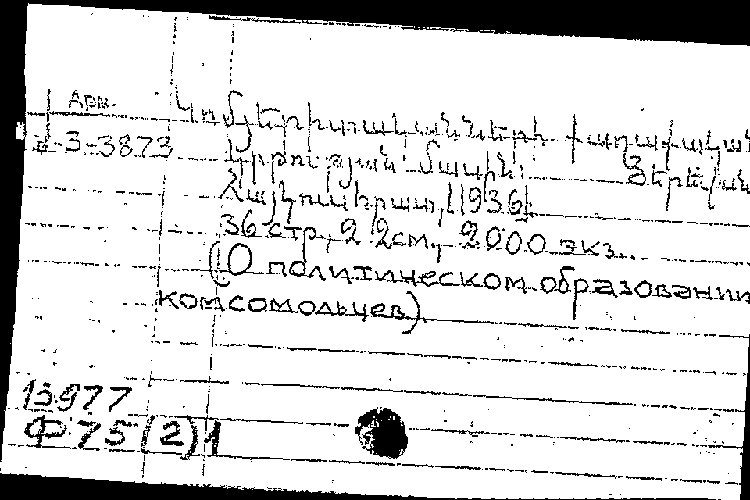 Арм.
3-3873
Կոմյերիտականների քաղաքական
կրթության մասին: Յերեվան
Հայկուսհրատ, 1936
36 стр., 22см., 2000 экз..
(О политическом образовании
комсомольцев).
13977
Ф75(2)1